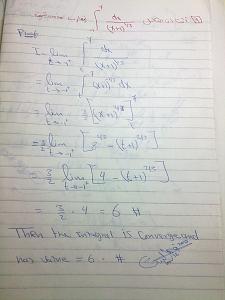 ∫ dx / (x+1)^(1/3)
Proof:
I = lim t→-1⁺ ∫ₜ⁷ dx / (x+1)^(1/3)
= lim t→-1⁺ ∫ₜ⁷ (x+1)^(-1/3) dx
= lim t→-1⁺ 3/2 [(x+1)^(2/3)]ₜ⁷
= 3/2 lim t→-1⁺ [8^(2/3) - (t+1)^(2/3)]
= 3/2 lim t→-1⁺ [4 - (t+1)^(2/3)]
= 3/2 · 4 = 6 #
Then the integral is converge and
has value = 6 . #